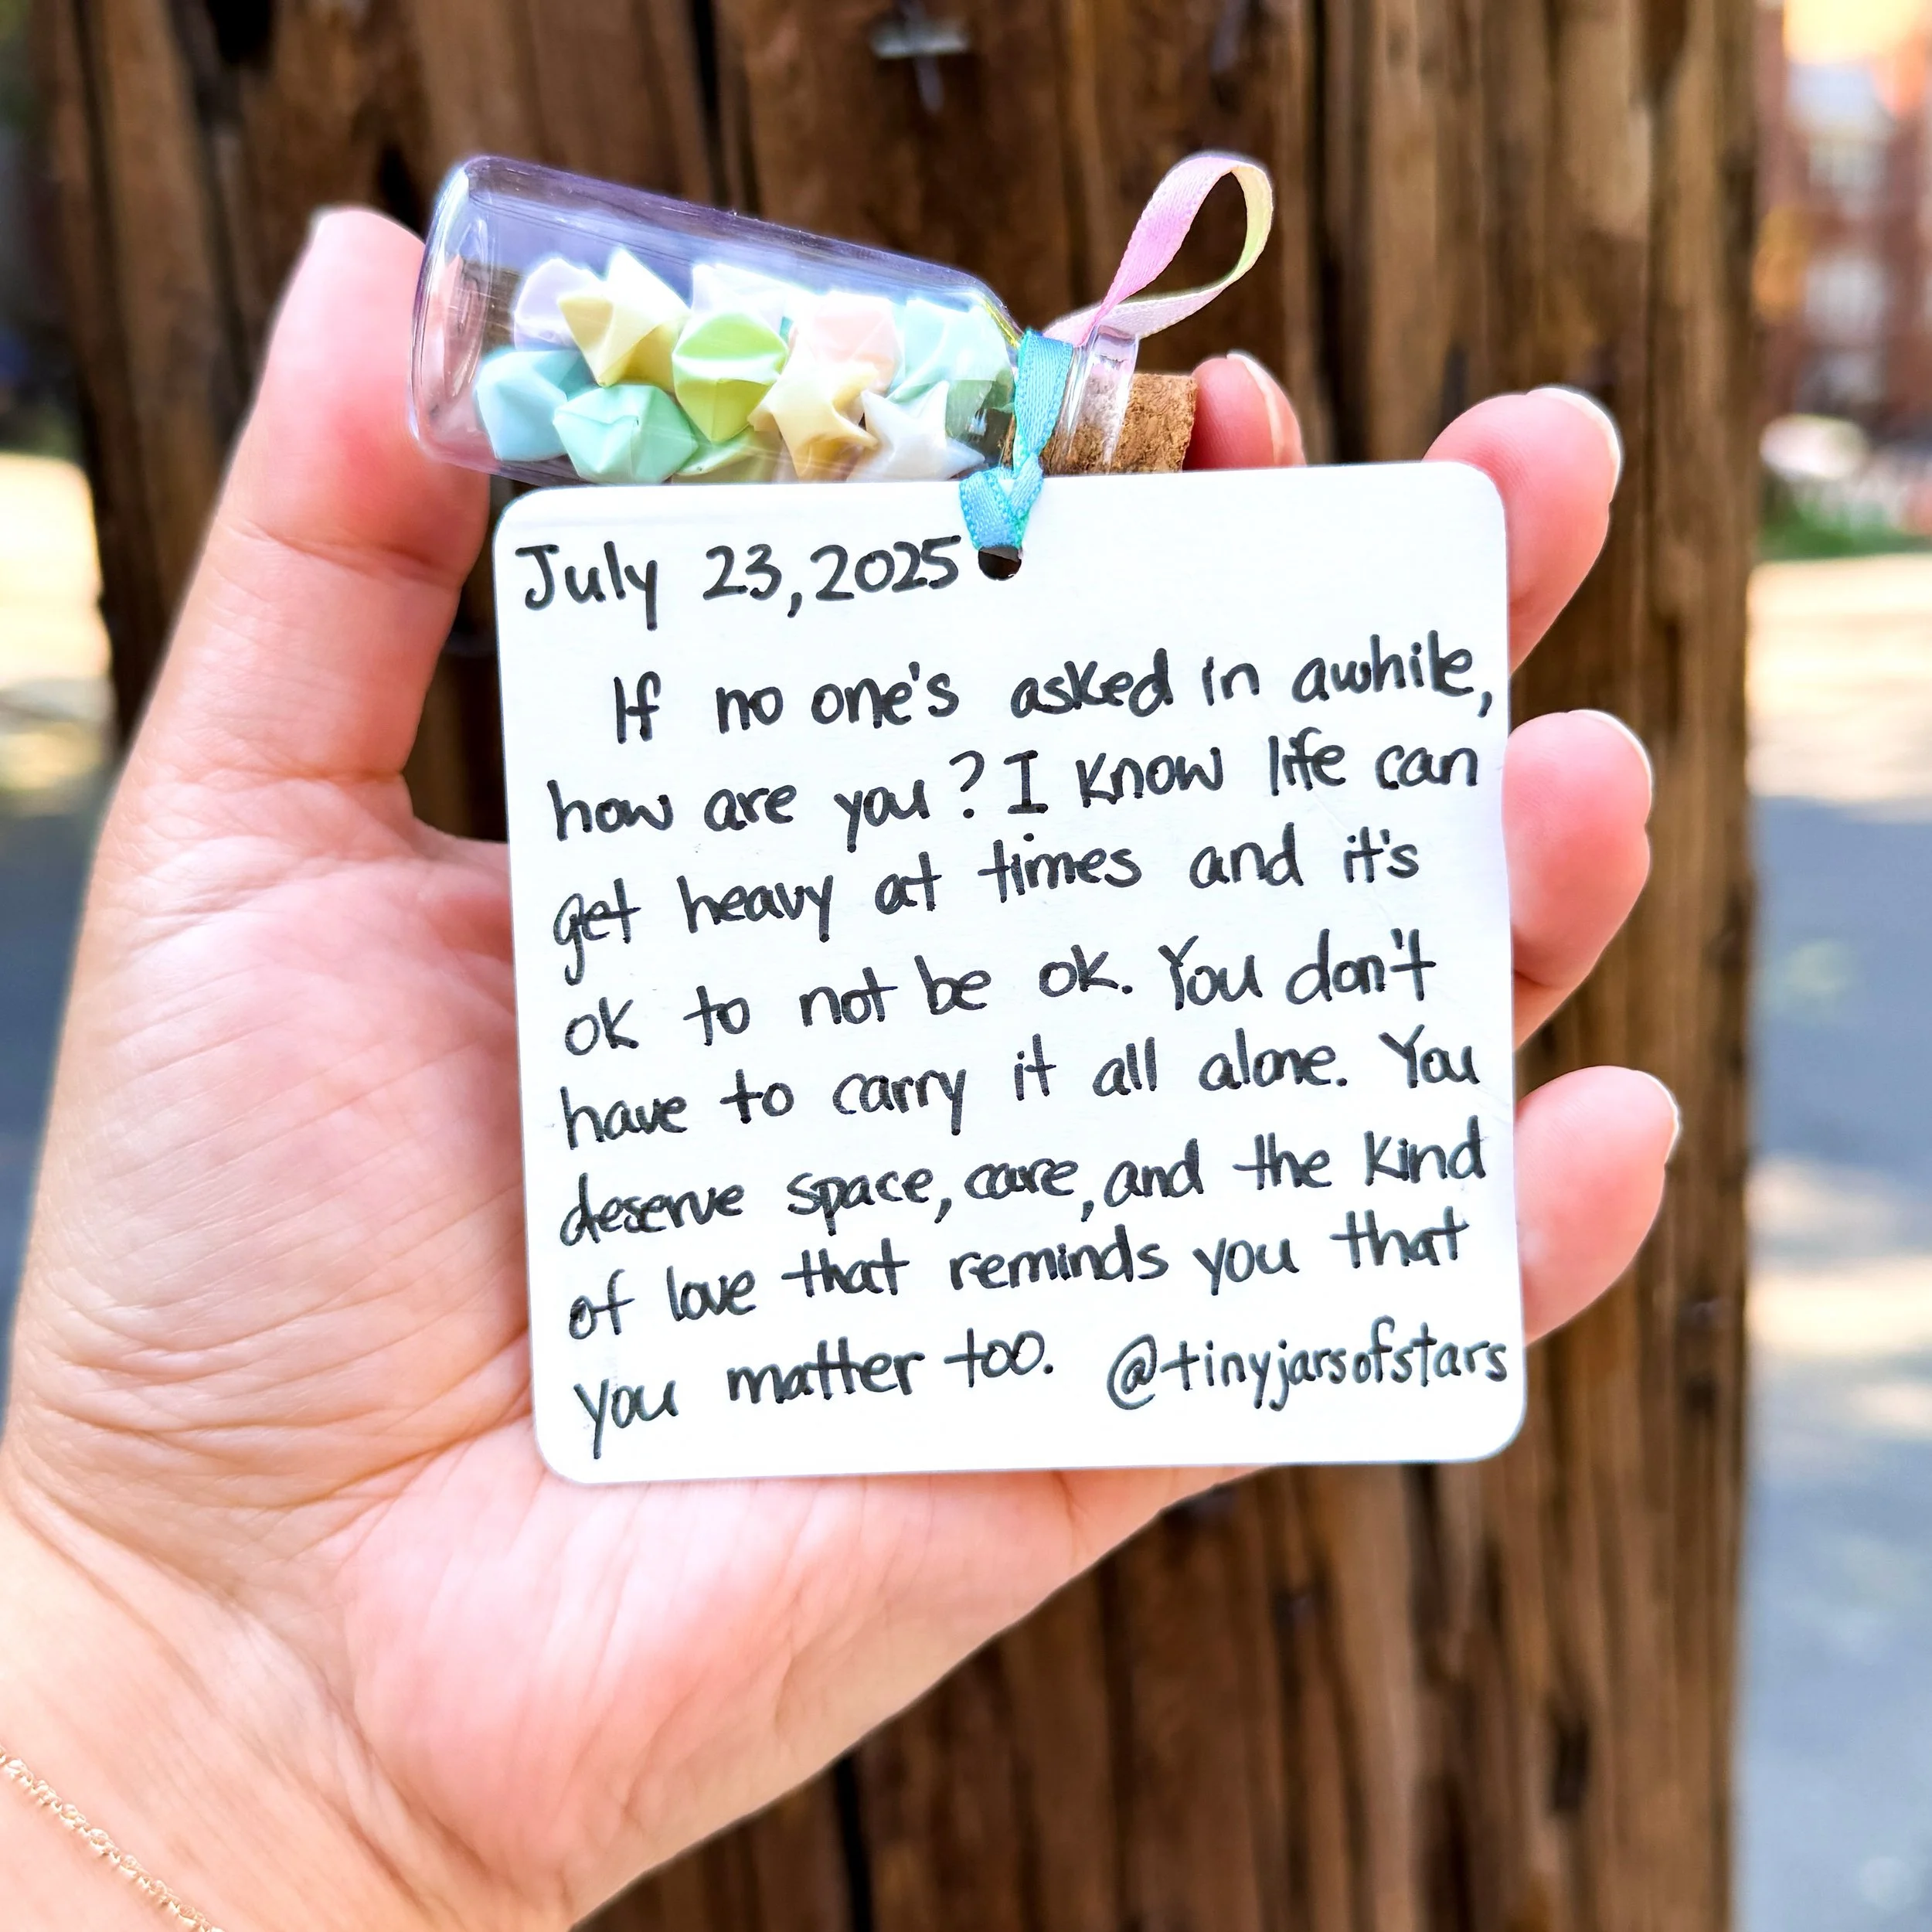 July 23, 2025
If no one's asked in awhile,
how are you? I know life can
get heavy at times and it's
ok to not be ok. You don't
have to carry it all alone. You
deserve space, care, and the kind
of love that reminds you that
you matter too. @tinyjarsofstars